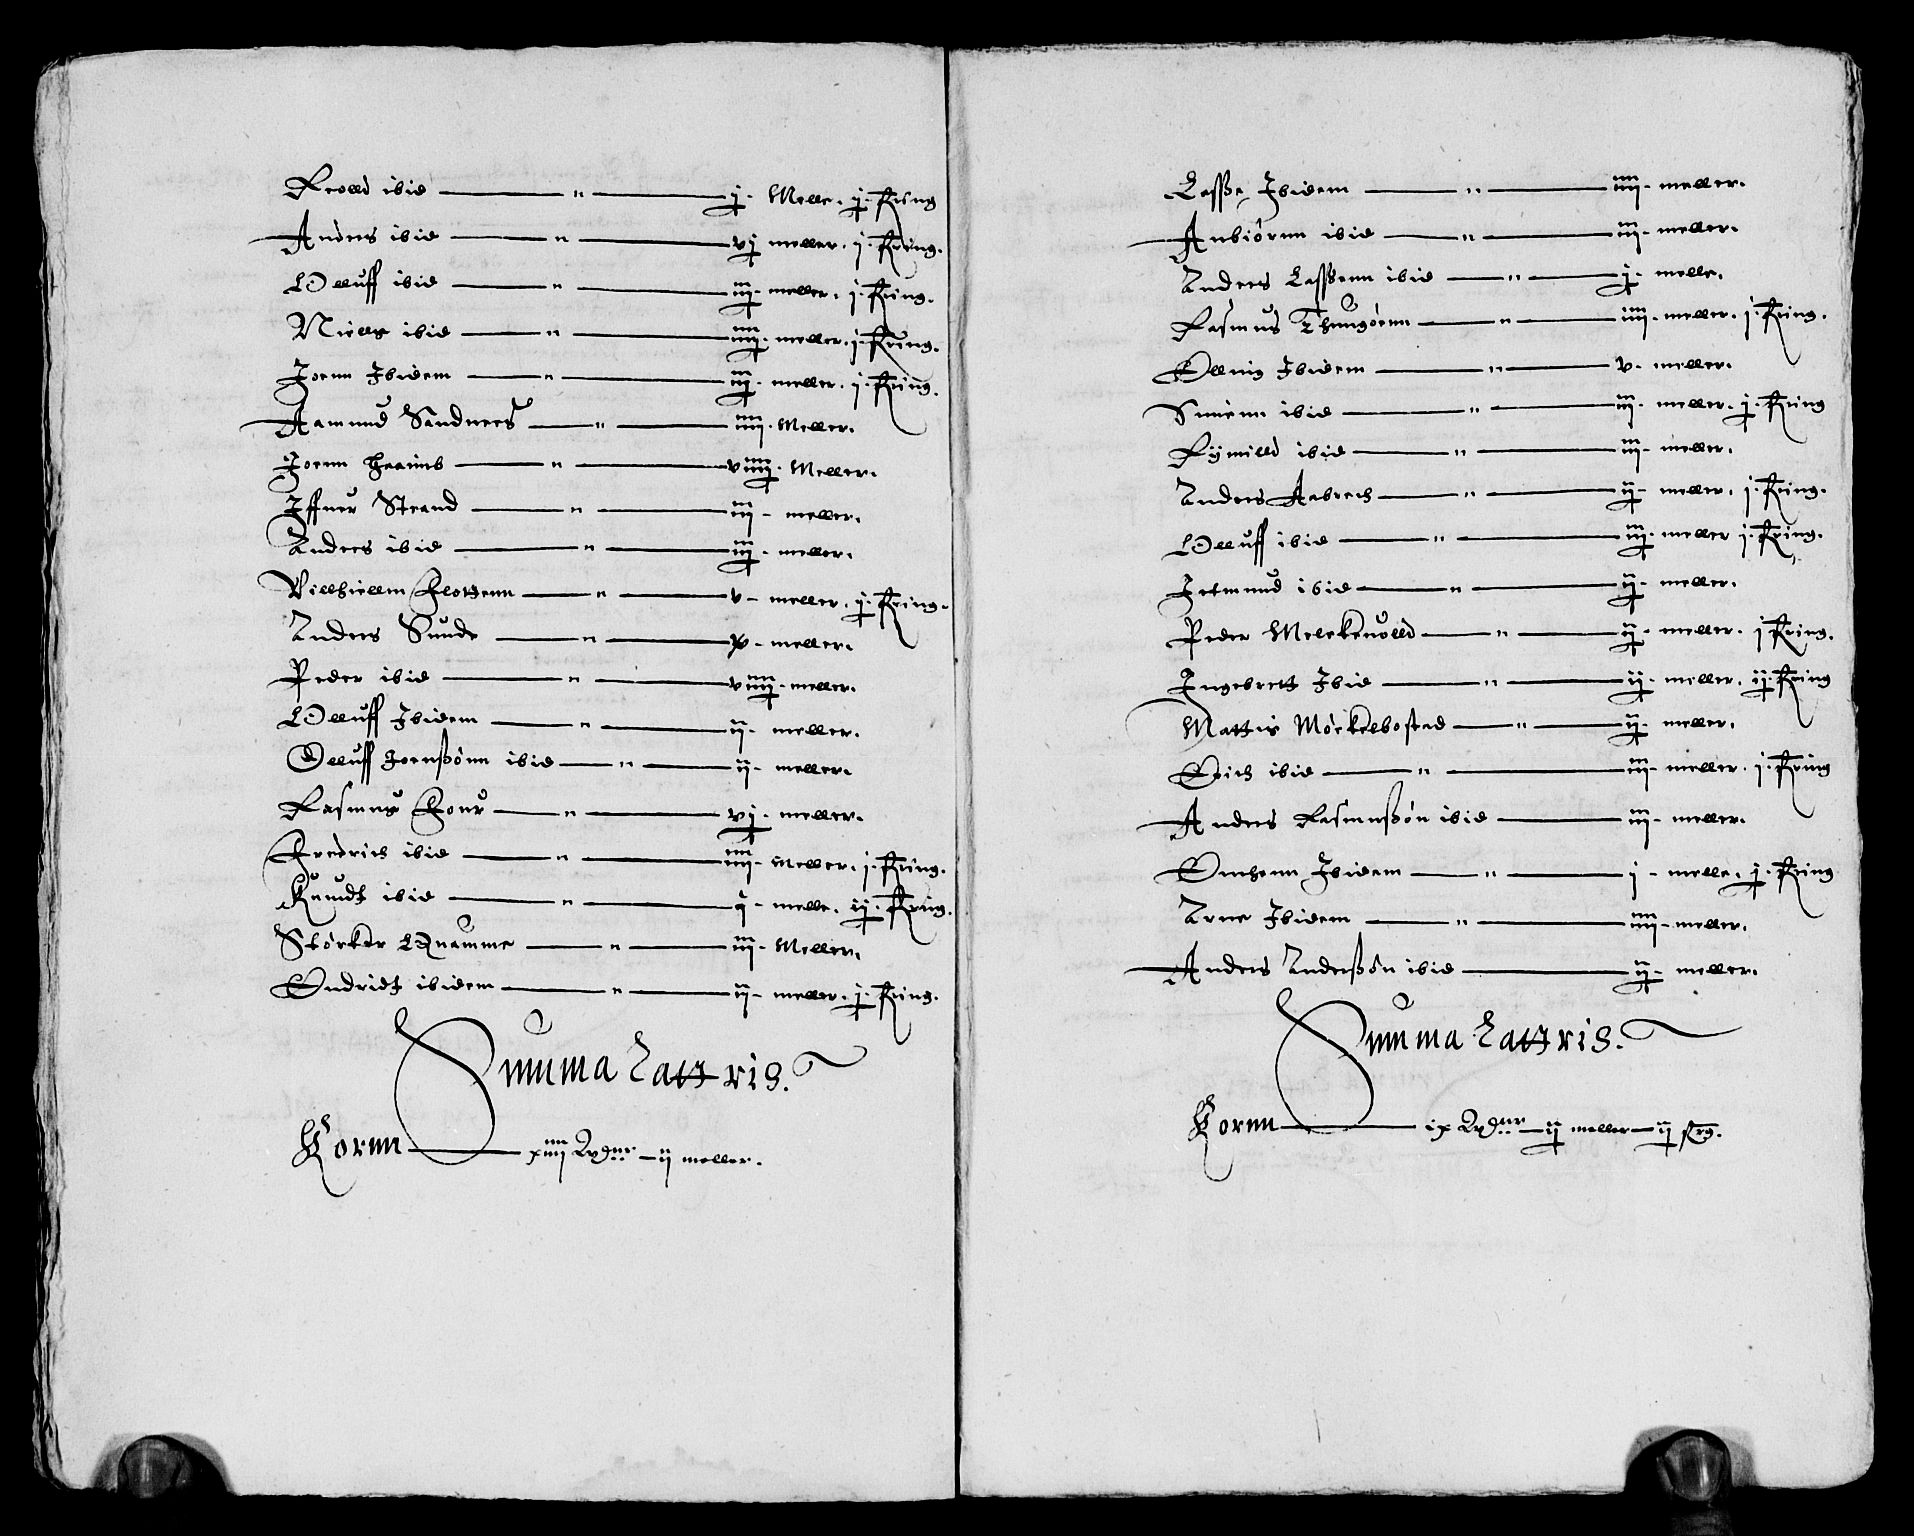 Lerold ibid — " — j. Melle. j. Kring
Anders ibid — " — vj meller. j. Kring.
Olluff ibid — " — iij. meller. j. Kring.
Nielß ibid — " — iiij. meller. j. Kring.
Joenn Ibidem — " — iij. meller. j. Kring.
Aamund Sandnees — " — iiij. Meller.
Joenn — " — viiij. Meller.
Iffuer Strand — " — iij – meller.
Anders ibid — " — iij. meller.
Villhiellm Flottenn — " — v – meller. j. Kring.
Anders Sunde — " — v – meller.
Peder ibid — " — viiij. meller.
Olluff Ibidem — " — ij. meller.
Olluff Joenßønn ibid — " — ij – meller.
Rasmus Four — " — vj. meller.
Fredrich ibid — " — iiij. Meller. j. Kring.
Knudt ibid — " — j – melle. ij. Kring.
Størker Quamme — " — iij. Meller.
Endridt ibidem — " — ij – meller. j. Kring.
Summa Latteris.
Kornn — xiiij Lodnr – ij meller.
Lasße Ibidem — " — iiij. meller.
Anbiørnn ibid — " — iij. meller.
Anders Lasßenn ibid — " — j. melle.
Rasmus — " — iiij. meller. j. Kring.
Elling Ibidem — " — v. meller.
Suuenn ibid — " — iij. meller. j. Kring
Rymilld ibid — " — iij. meller.
Anders Aabrech — " — ij. meller. j. Kring.
Olluff ibid — " — iij. meller j. Kring.
Jetmund ibid — " — ij. meller.
Peder Melckeuolld — " — ij. meller. j Kring.
Ingebrett Ibid — " — ij. meller. ij. Kring
Mattis Møckelbostad — " — ij. meller.
Erich ibid — " — iij. meller. j. Kring
Anders Rasmußøn ibid — iij. meller.
Omhenn Ibidem — " — j – melle. j. Kring
Arne Ibidem — " — iiij – meller.
Anders Anderßøn ibid — ij – meller.
Summa Latteris.
Kornn — ix Lodnr – ij meller – ij krg.